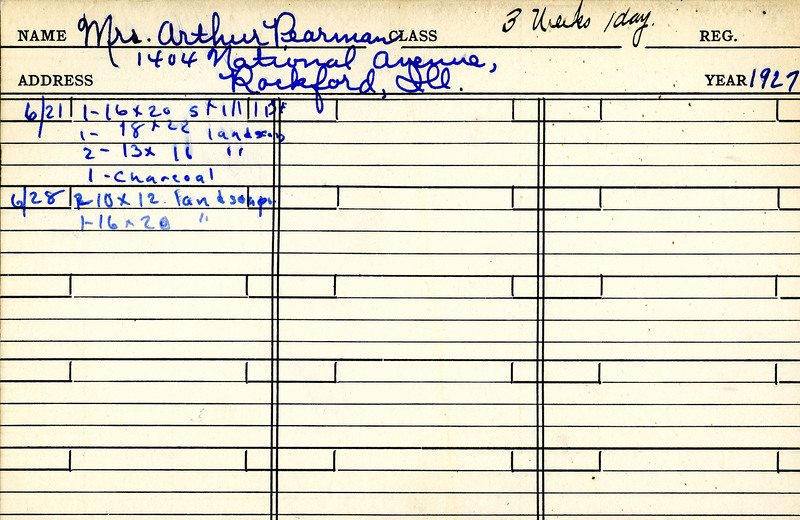 NAME Mrs. Arthur Pearman CLASS 3 Weeks 1 day. REG.
1404 National Avenue,
ADDRESS Rockford, Ill. YEAR 1927
6/21 1-16x20 still life
1- 18x22 landscap
2- 13x 16 "
1-Charcoal
6/28 2-10x12 landscape
1-16x20 "